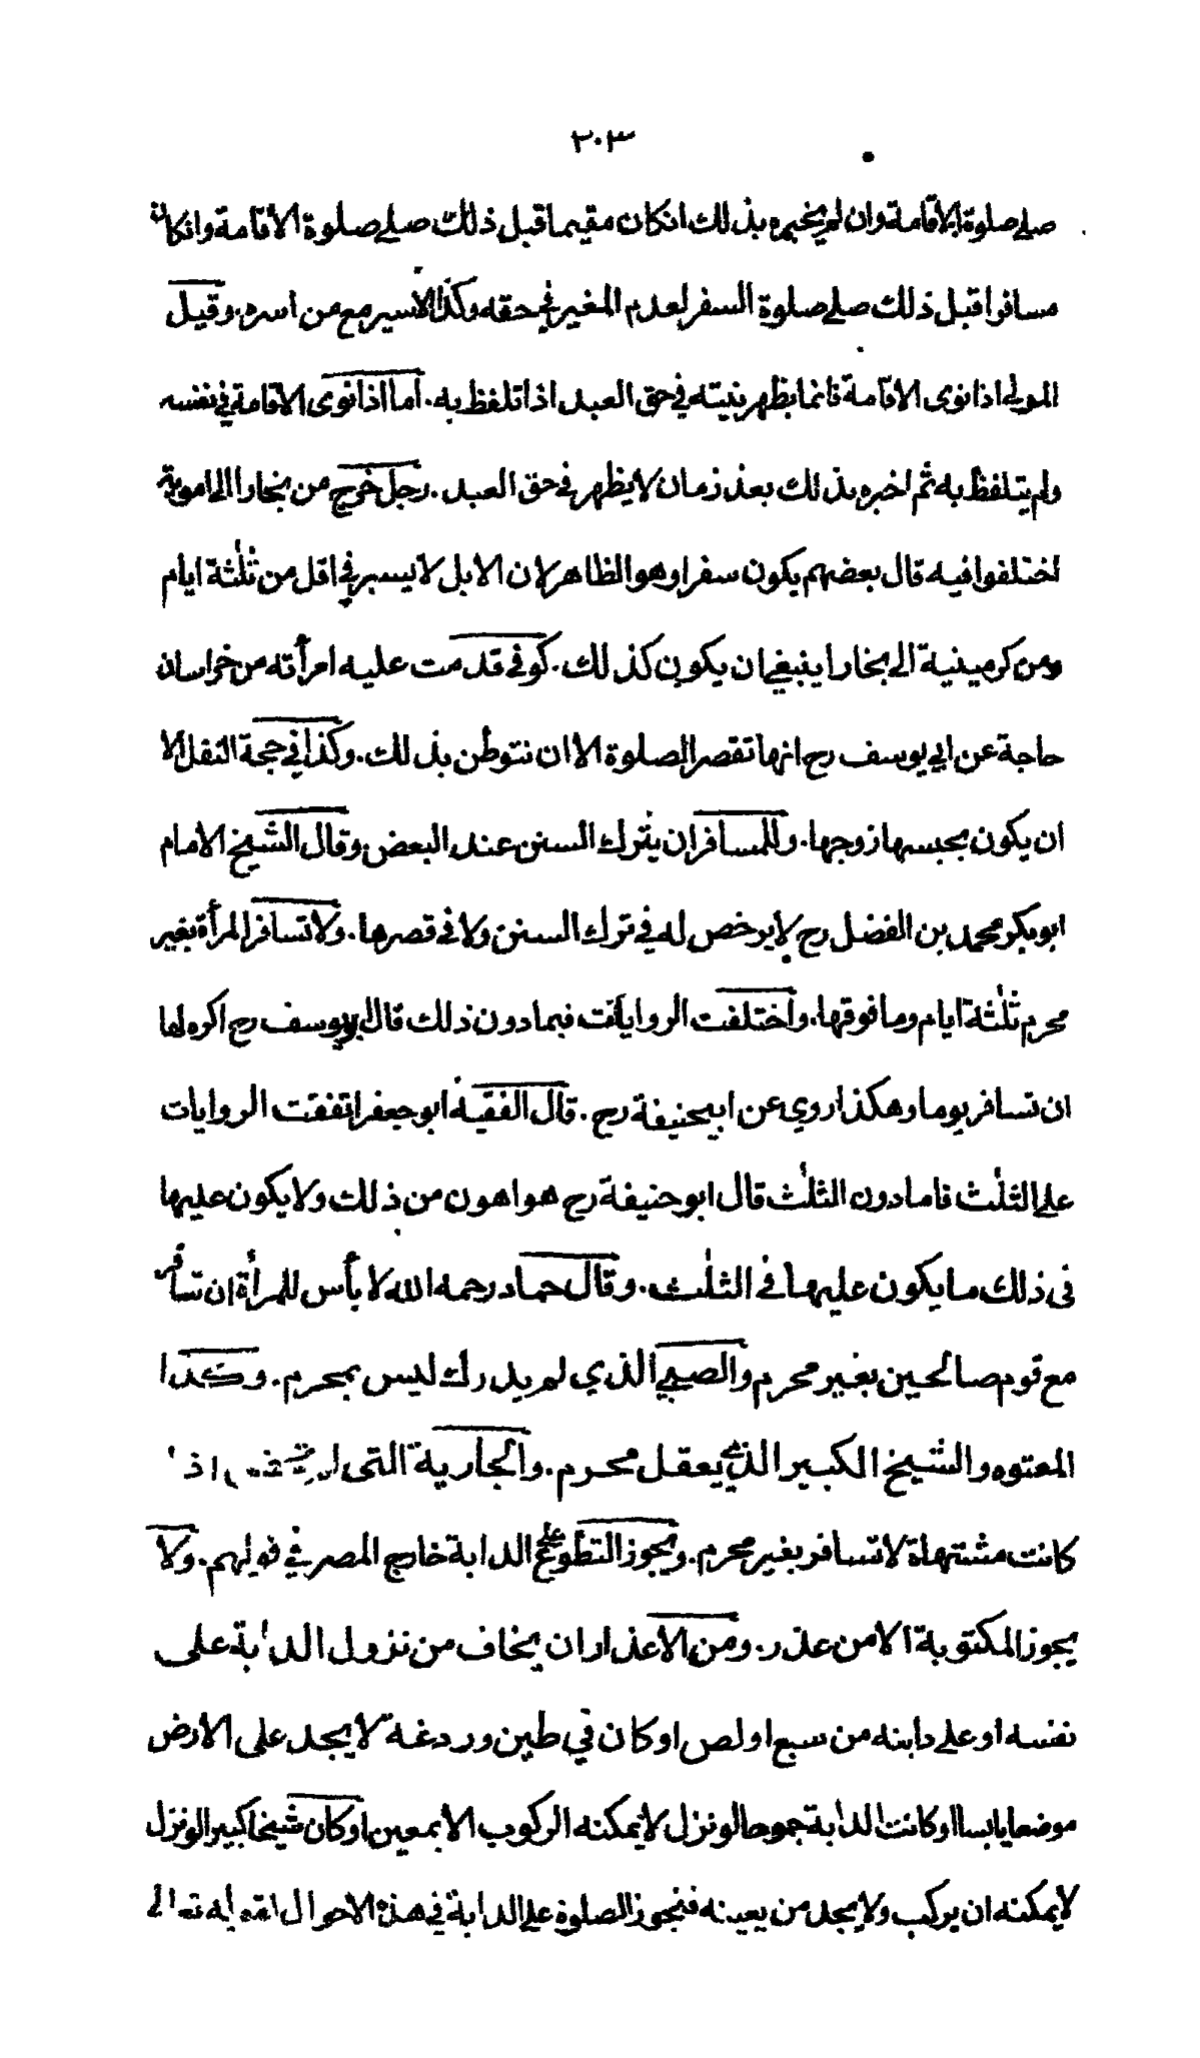 ٢٠٣
صلى صلوة الاقامة وان لم يخبره بذلك ان كان مقيما قبل ذلك صلى صلوة الاقامة وان كان
مسافرا قبل ذلك صلى صلوة السفر لعدم المغير في حقه وكذا الاسير مع من اسره. وقيل
المولى اذا نوى الاقامة فانما يظهر نيته في حق العبد اذا تلفظ به. اما اذا نوى الاقامة في نفسه
ولم يتلفظ به ثم اخبره بذلك بعد زمان لا يظهر في حق العبد. رجل خرج من بخارا الى اموية
اختلفوا فيه قال بعضهم يكون سفرا وهو الظاهر لان الابل لا يسير في اقل من ثلثة ايام
ومن كرمينية الى بخارا ينبغي ان يكون كذلك. كوفي قدمت عليه امرأته من خراسان
حاجة عن ابي يوسف رح انها تقصر الصلوة الا ان تتوطن بذلك. وكذا في حجة النفل الا
ان يكون يحبسها زوجها. وللمسافر ان يترك السنن عند البعض وقال الشيخ الامام
ابو بكر محمد بن الفضل رح لا يرخص له في ترك السنن ولا في قصرها. ولا تسافر المرأة بغير
محرم ثلثة ايام وما فوقها. واختلفت الروايات فيما دون ذلك قال ابو يوسف رح اكره لها
ان تسافر يوما وهكذا روي عن ابيحنيفة رح. قال الفقيه ابو جعفر اتفقت الروايات
على الثلث فاما دون الثلث قال ابو حنيفة رح هو اهون من ذلك ولا يكون عليها
في ذلك ما يكون عليها في الثلث. وقال حماد رحمه الله لا بأس للمرأة ان تسافر
مع قوم صالحين بغير محرم والصبي الذي لم يدرك ليس بمحرم. وكذا
المعتوه والشيخ الكبير الذي يعقل محرم. والجارية التى لم تحض اذا
كانت مشتهاة لا تسافر بغير محرم. ويجوز التطوع على الدابة خارج المصر في قولهم. ولا
يجوز المكتوبة الا من عذر. ومن الاعذار ان يخاف من نزول الدابة على
نفسه او على دابته من سبع او لص او كان في طين وردغة لا يجد على الارض
موضعا يابسا او كانت الدابة جموحا لو نزل لا يمكنه الركوب الا بمعين او كان شيخا كبيرا لو نزل
لا يمكنه ان يركب ولا يجد من يعينه فتجوز الصلوة على الدابة في هذه الاحوال لقوله تعالى